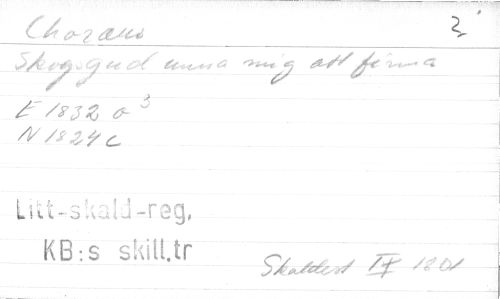 Choraeus 2
Skogsgud unna mig att finna
E 1832 a 3
N 1824 c
Litt-skald-reg.
KB:s skill.tr
Skaldest IX 1201